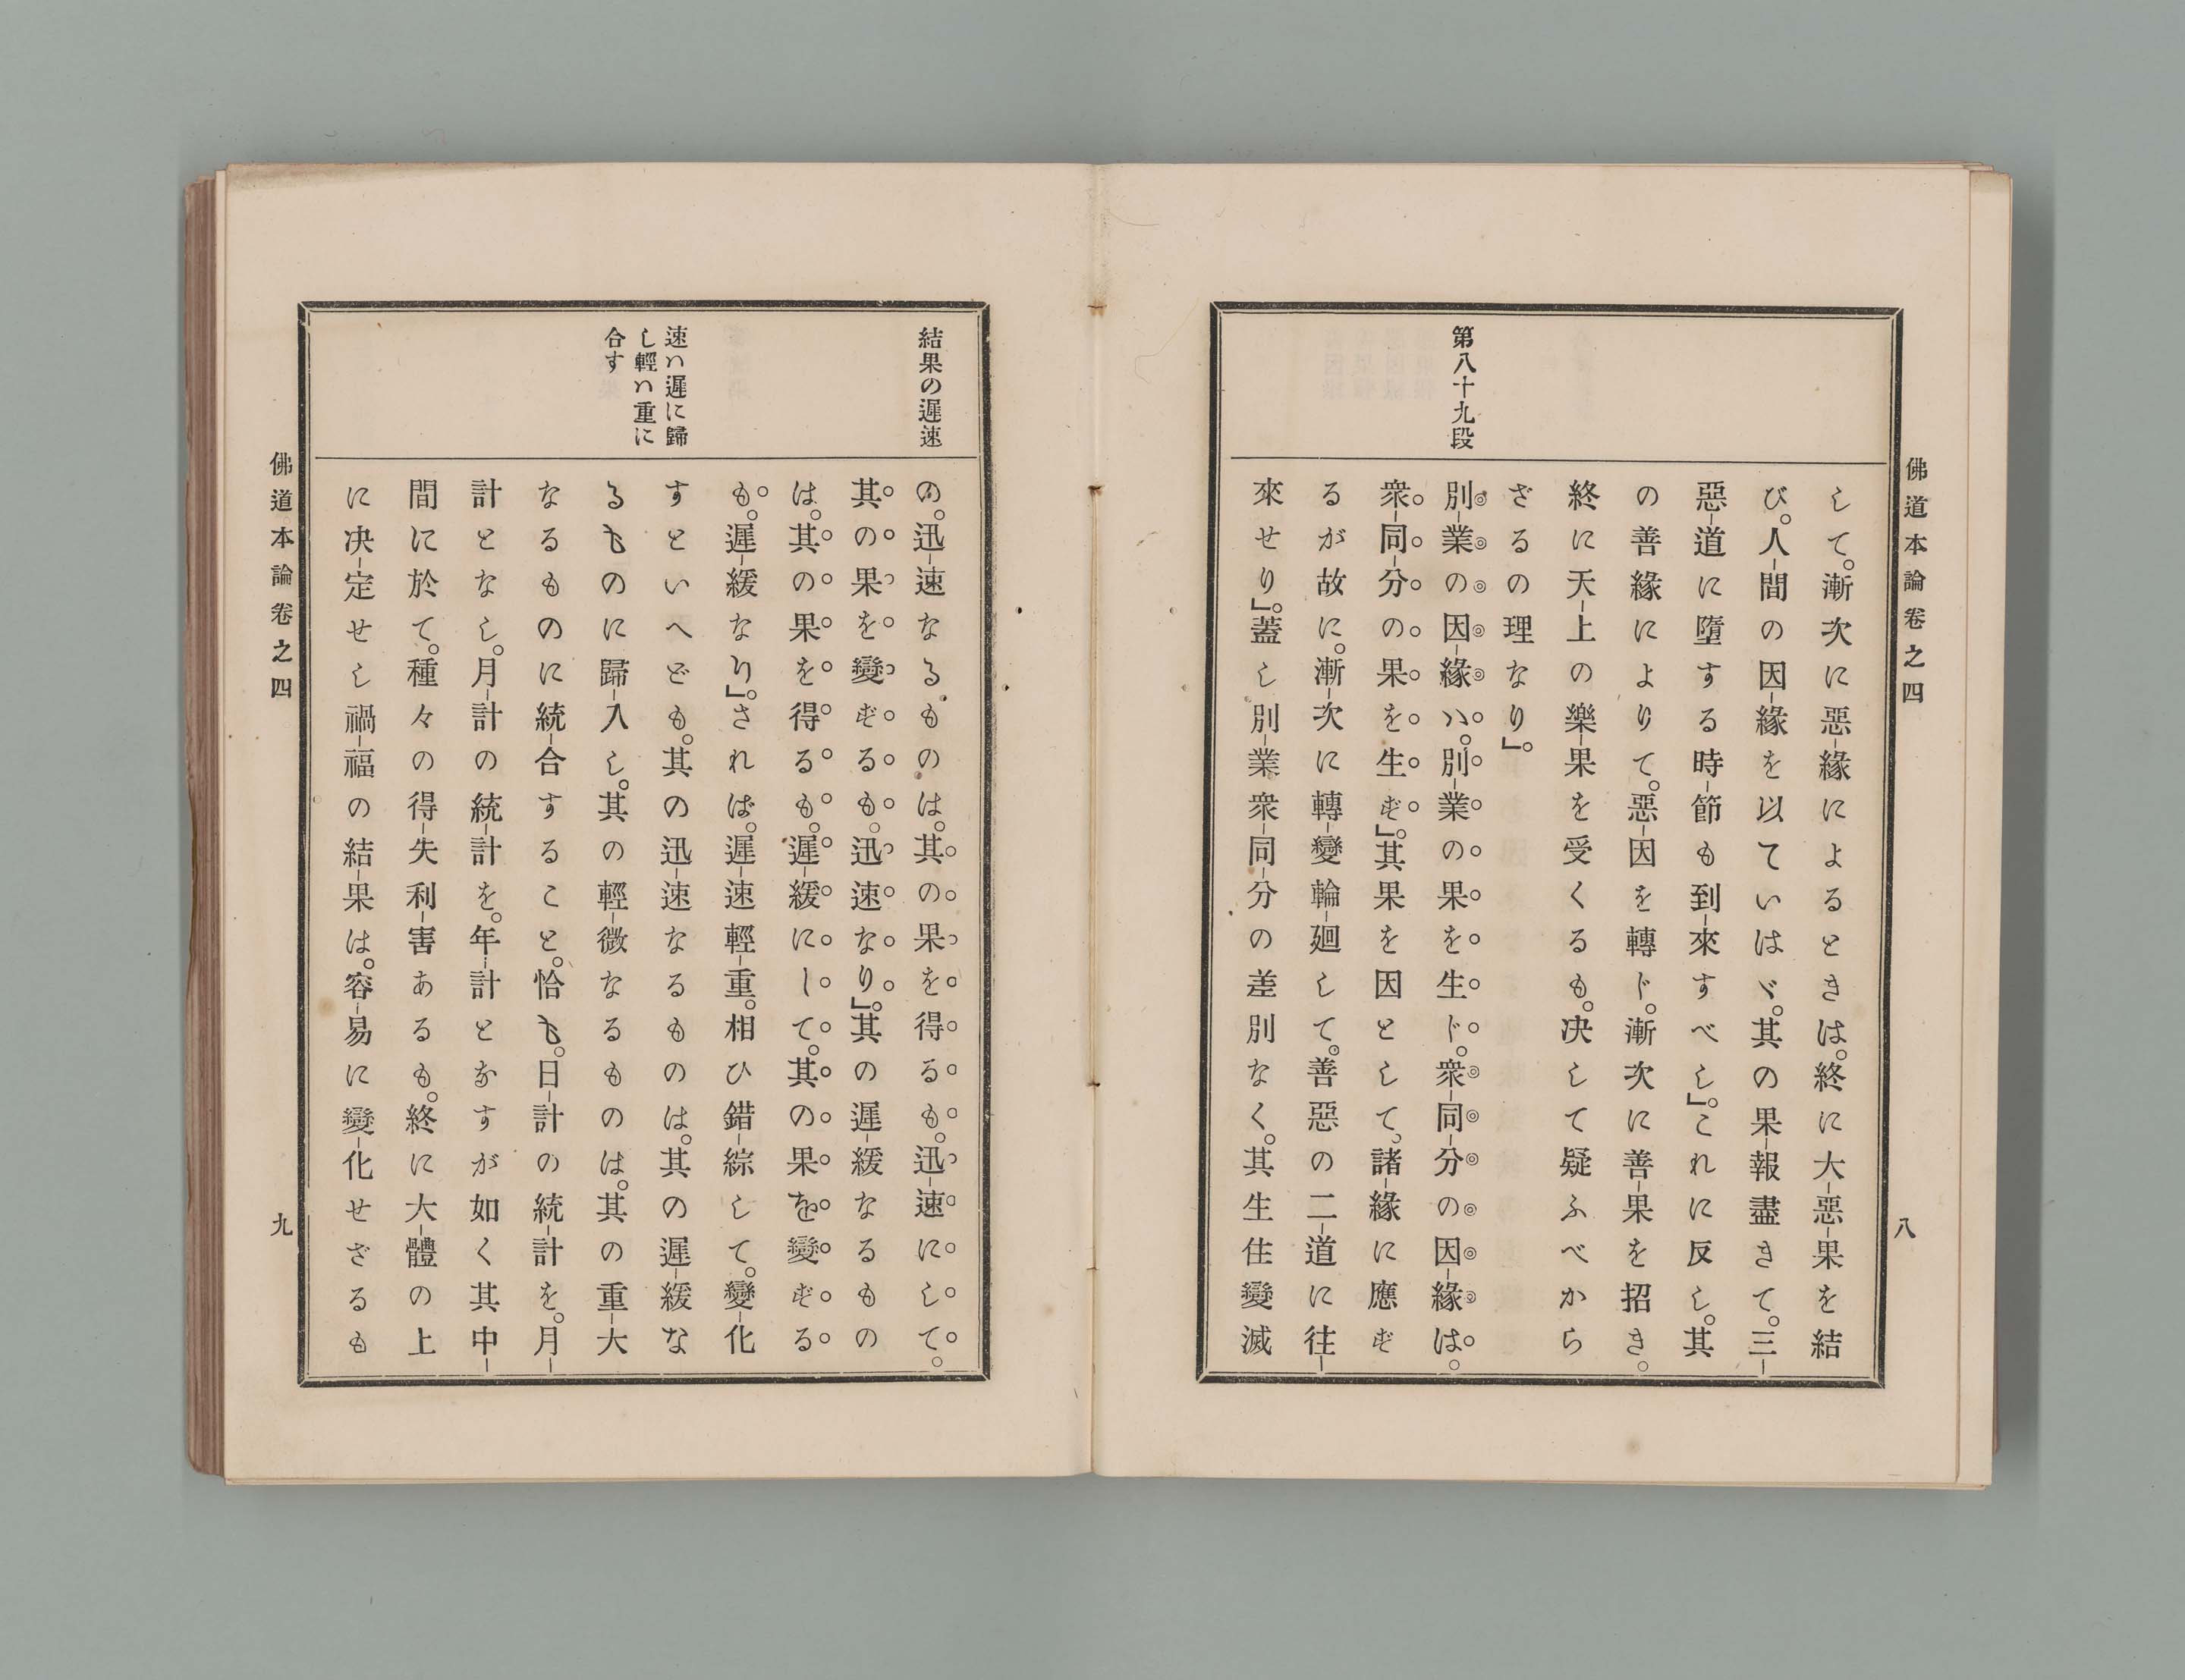 佛道本論卷之四
八
第八十九段
して。漸次に惡-緣によるときは。終に大-惡-果を結
び。人-間の因-緣を以ていはゞ。其の果-報盡きて。三-
惡-道に墮する時-節も到-來すべし」。これに反し。其
の善緣によりて。惡-因を轉ド。漸次に善-果を招き。
終に天-上の樂-果を受くるも。决して疑ふべから
ざるの理なり」。
別-業の因-緣ハ。別-業の果を生ド。衆-同-分の因-緣は。
衆-同-分の果を生ず」。其果を因として。諸-緣に應ず
るが故に。漸-次に轉-變輪-廻して。善惡の二-道に往-
來せり」。蓋し別-業衆-同-分の差別なく。其生住變滅
結果の遲速
速ハ遲に歸
し輕ハ重に
合す
の。迅-速なるものは。其の果を得るも。迅-速にして。
其の果を變ずるも。迅速なり」。其の遲-緩なるもの
は。其の果を得るも。遲-緩にして。其の果を變ずる
も。遲-緩なり」。されば。遲-速輕-重。相ひ錯-綜して。變-化
すといへども。其の迅-速なるものは。其の遲-緩な
るものに歸-入し。其の輕-微なるものは。其の重-大
なるものに統-合すること。恰も。日-計の統-計を。月-
計となし。月-計の統-計を。年-計となすが如く其中-
間に於て。種々の得-失利-害あるも。終に大-體の上
に决-定せし禍-福の結-果は。容-易に變-化せざるも
佛道本論卷之四
九